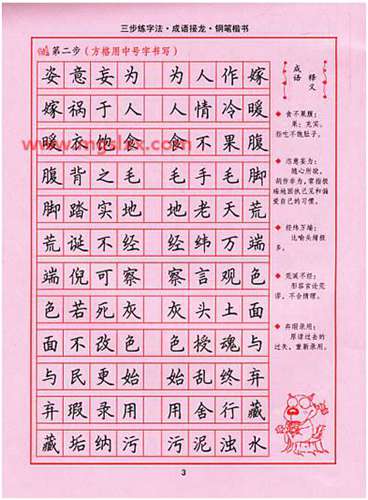 三步练字法·成语接龙·钢笔楷书
第二步（方格用中号字书写）
姿意妄为 为人作嫁
嫁祸于人 人情冷暖
暖衣饱食 食不果腹
腹背之毛 毛手毛脚
脚踏实地 地老天荒
荒诞不经 经纬万端
端倪可察 察言观色
色若死灰 灰头土面
面不改色 色授魂与
与民更始 始乱终弃
弃瑕录用 用舍行藏
藏垢纳污 污泥浊水
成语释义
食不果腹：
果：充实。
指吃不饱肚子。
恣意妄为：
随心所欲，
胡作非为，常指极
端地固执己见和偏
爱自己的习惯。
经纬万端：
比喻头绪
很多。
荒诞不经：
形容言论荒
谬，不合情理。
弃瑕录用：
原谅过去的
过失，重新录用。
3